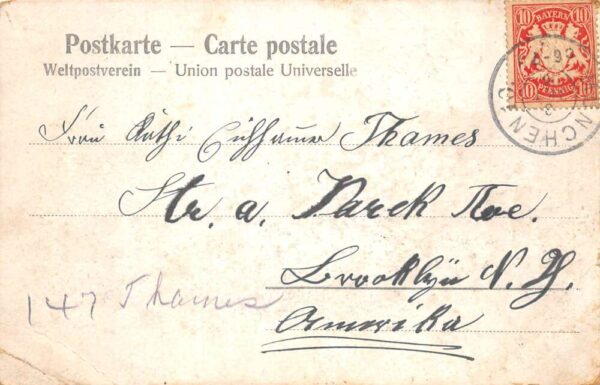 Postkarte — Carte postale
Weltpostverein — Union postale Universelle
10 BAYERN 10
10 PFENNIG 10
NCHEN
Frau Käthi Eichhammer Thames
Str. a. Parck Awe.
Brooklÿn N. Y.
Amerika
147 Thames